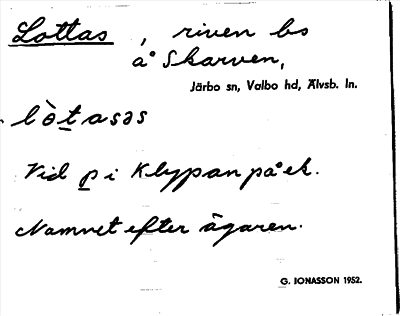 Lottas, riven bs
å Skarven,
Järbo sn, Valbo hd, Älvsb. ln.
lò̱tasəs
Vid p i Klypan på ek.
Namnet efter ägaren.
G. JONASSON 1952.